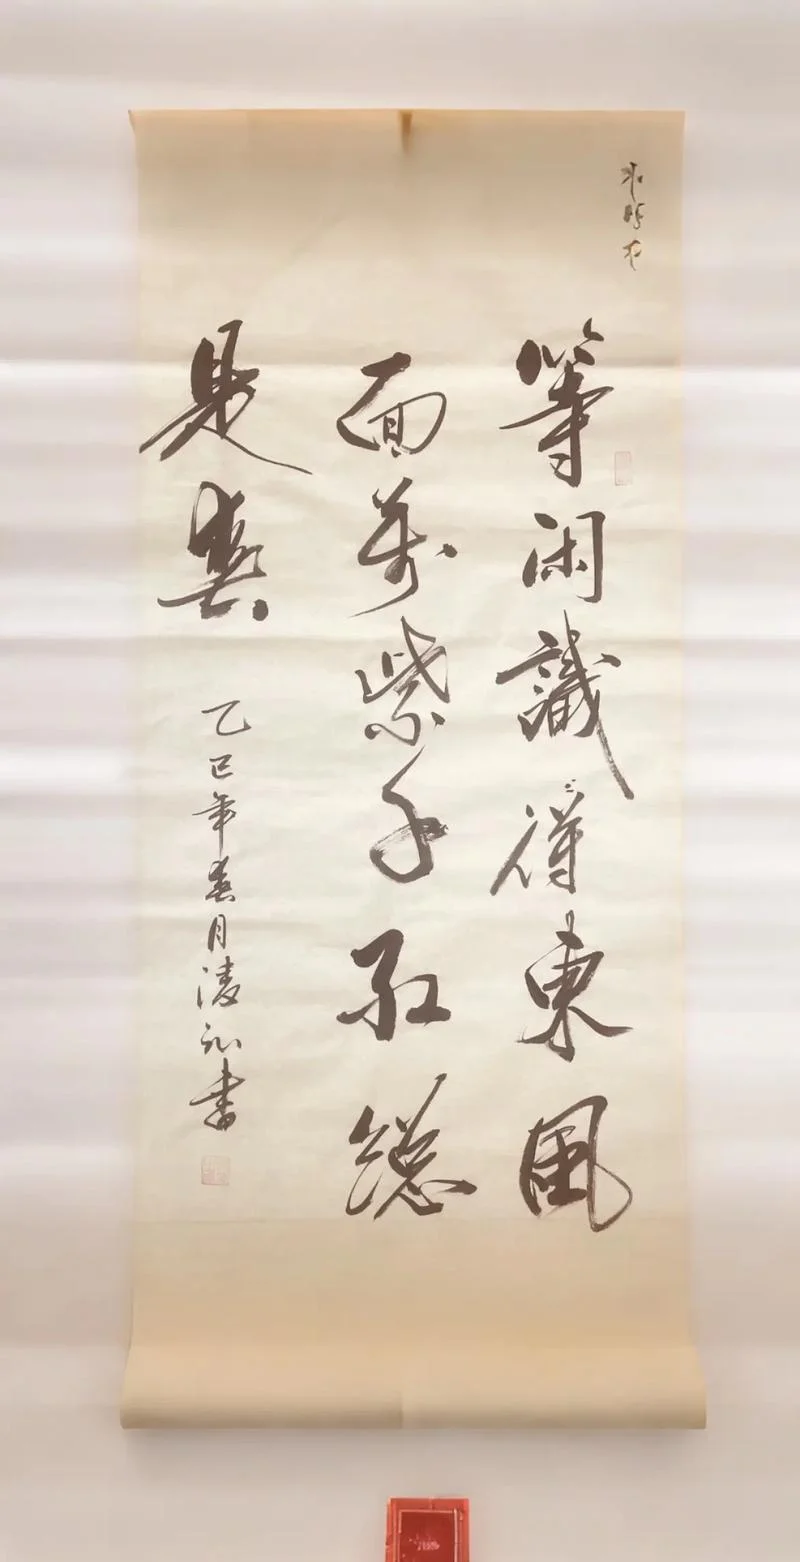 等闲識得東風
面萬紫千红總
是春
乙巳年春月凌沁書